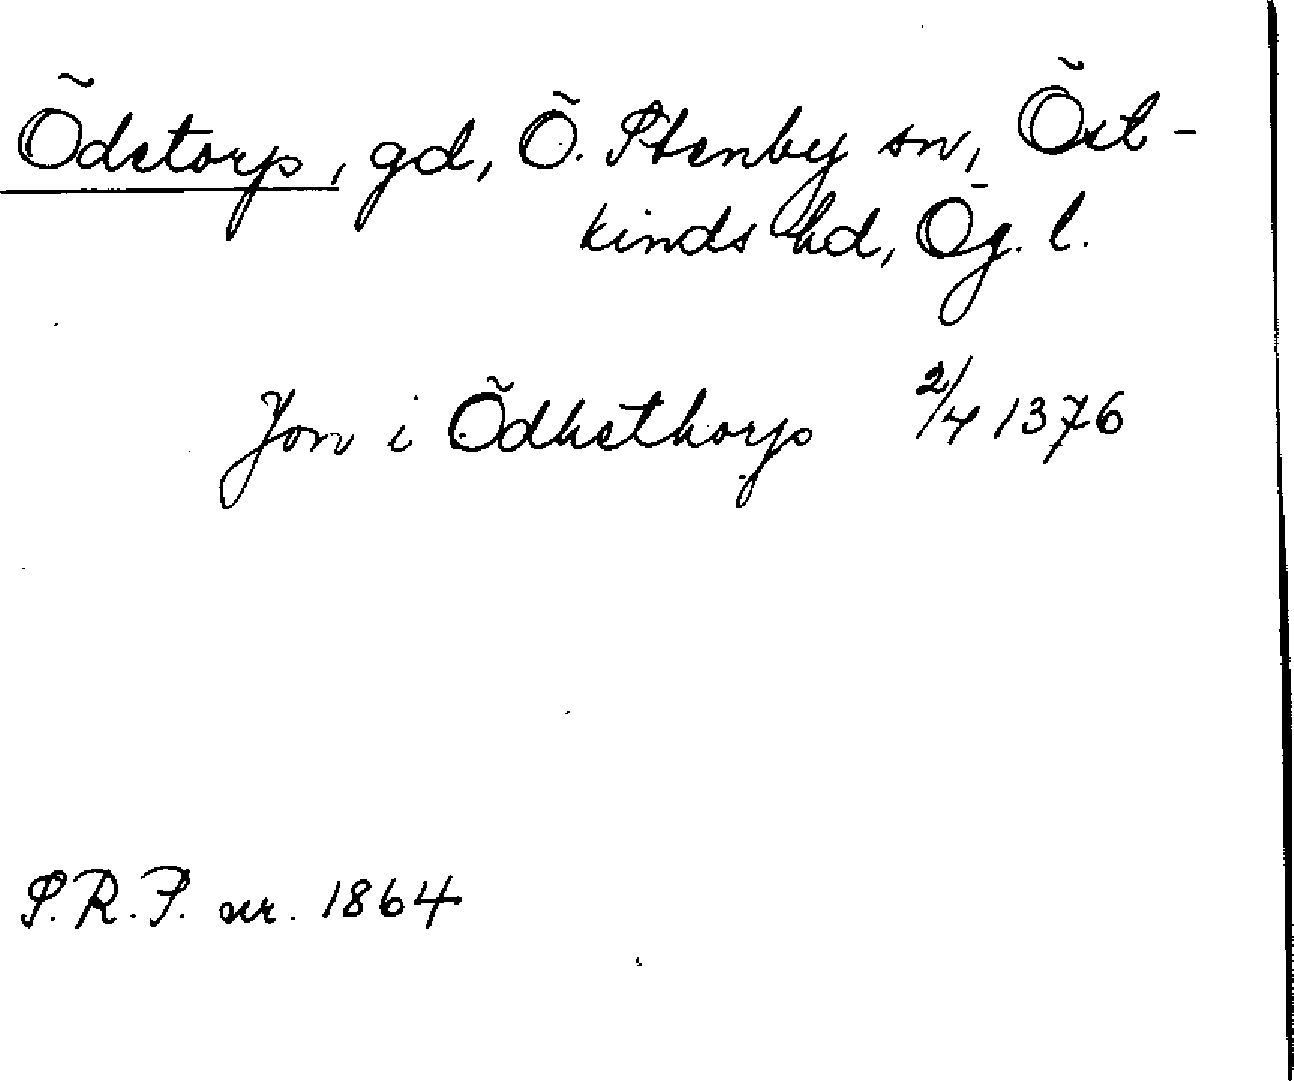 Ödstorp, gd, Ö. Stenby sn, Öst-
kinds hd, Ög. l.
Jon i Ödhsthorp 2/4 1376
S.R.P. nr. 1864